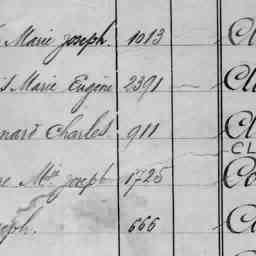 Marie Joseph. 1013 Cl
is Marie Eugène 2391 — Cl
nard Charles 911 Cl
CL
re Mie Joseph 1725 Co
seph. 666 Co